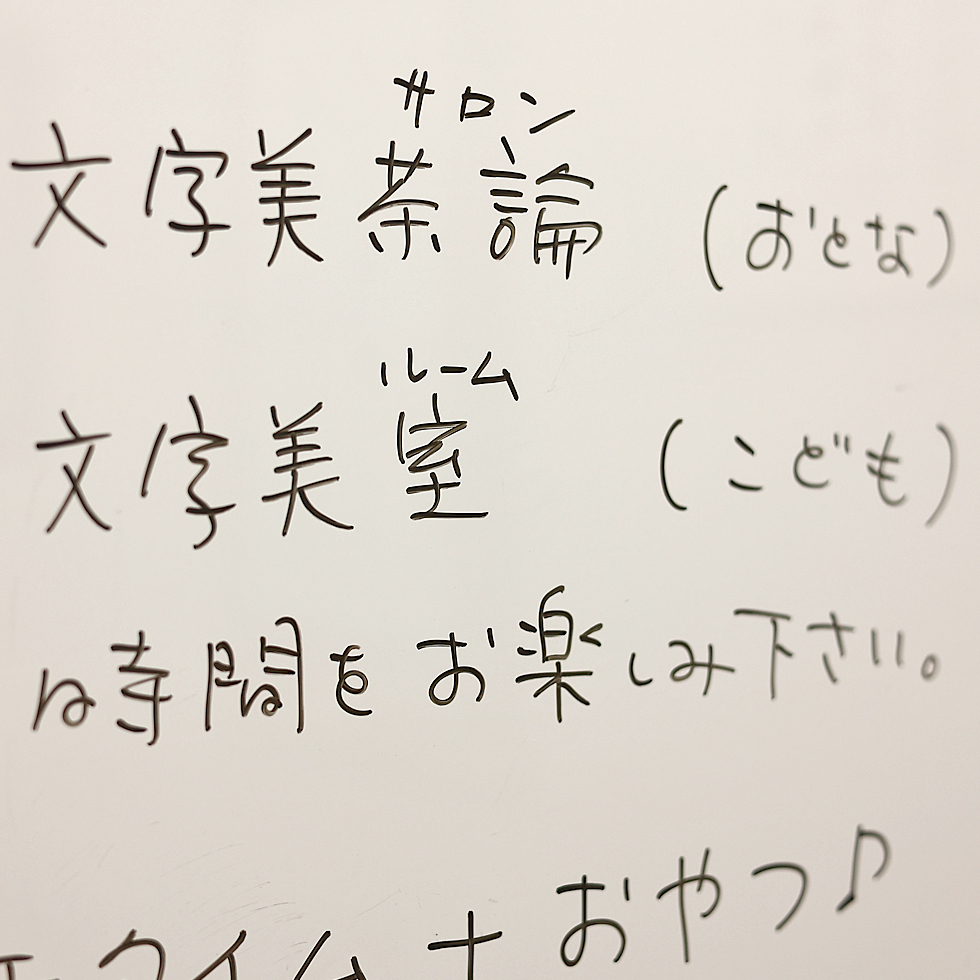 サロン
文字美茶論 (おとな)
ルーム
文字美室 (こども)
時間をお楽しみ下さい。
タイム+おやつ♪